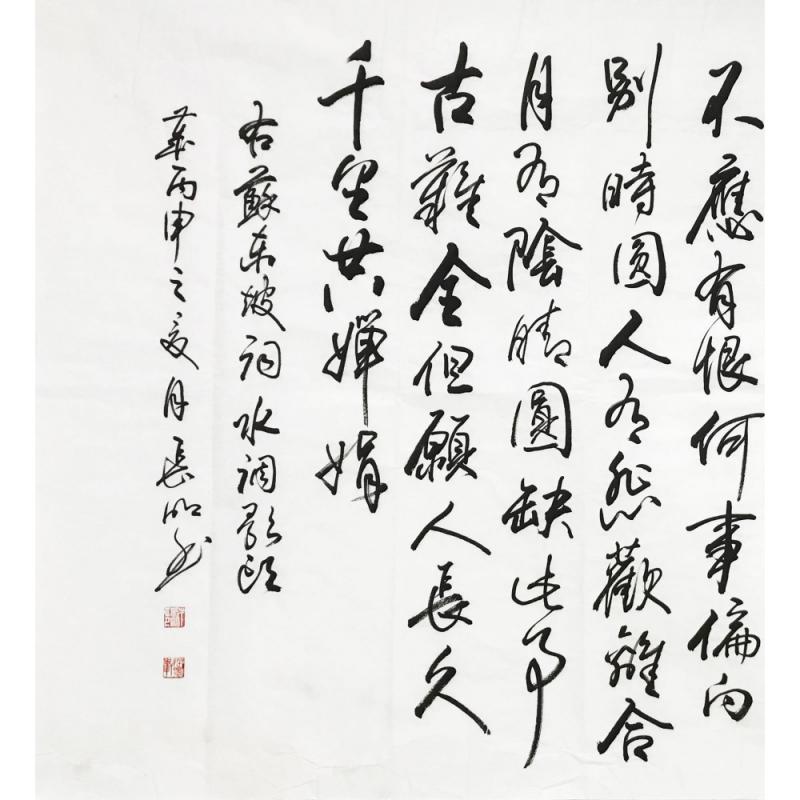 不應有恨何事偏向
別時圓人有悲歡離合
月有陰晴圓缺此事
古難全但願人長久
千里共嬋娟
右蘇東坡詞水調歌頭
歲丙申之夏月長明書